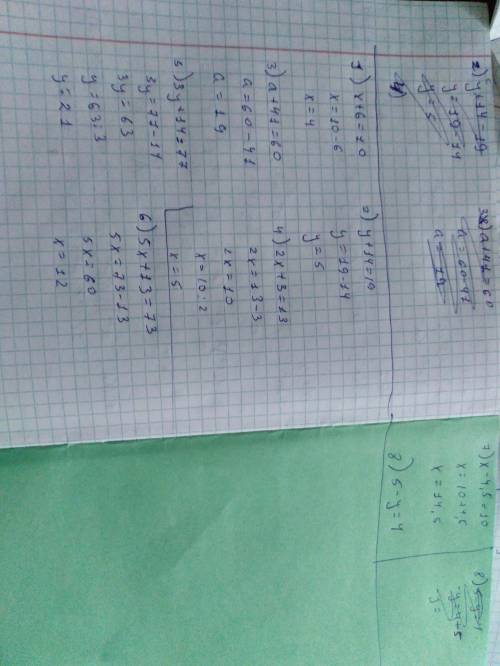 2) y+14=19
y=19-14
y=5
3) a+41=60
a=60-41
a=19
1) x+6=10
x=10-6
x=4
2) y+14=19
y=19-14
y=5
3) a+41=60
a=60-41
a=19
4) 2x+3=13
2x=13-3
2x=10
x=10:2
x=5
5) 3y+14=77
3y=77-14
3y=63
y=63:3
y=21
6) 5x+13=73
5x=73-13
5x=60
x=12
7) x-4,5=10
x=10+4,5
x=14,5
8) 5-y=4
8) 5-y=4
y=4+5
y=